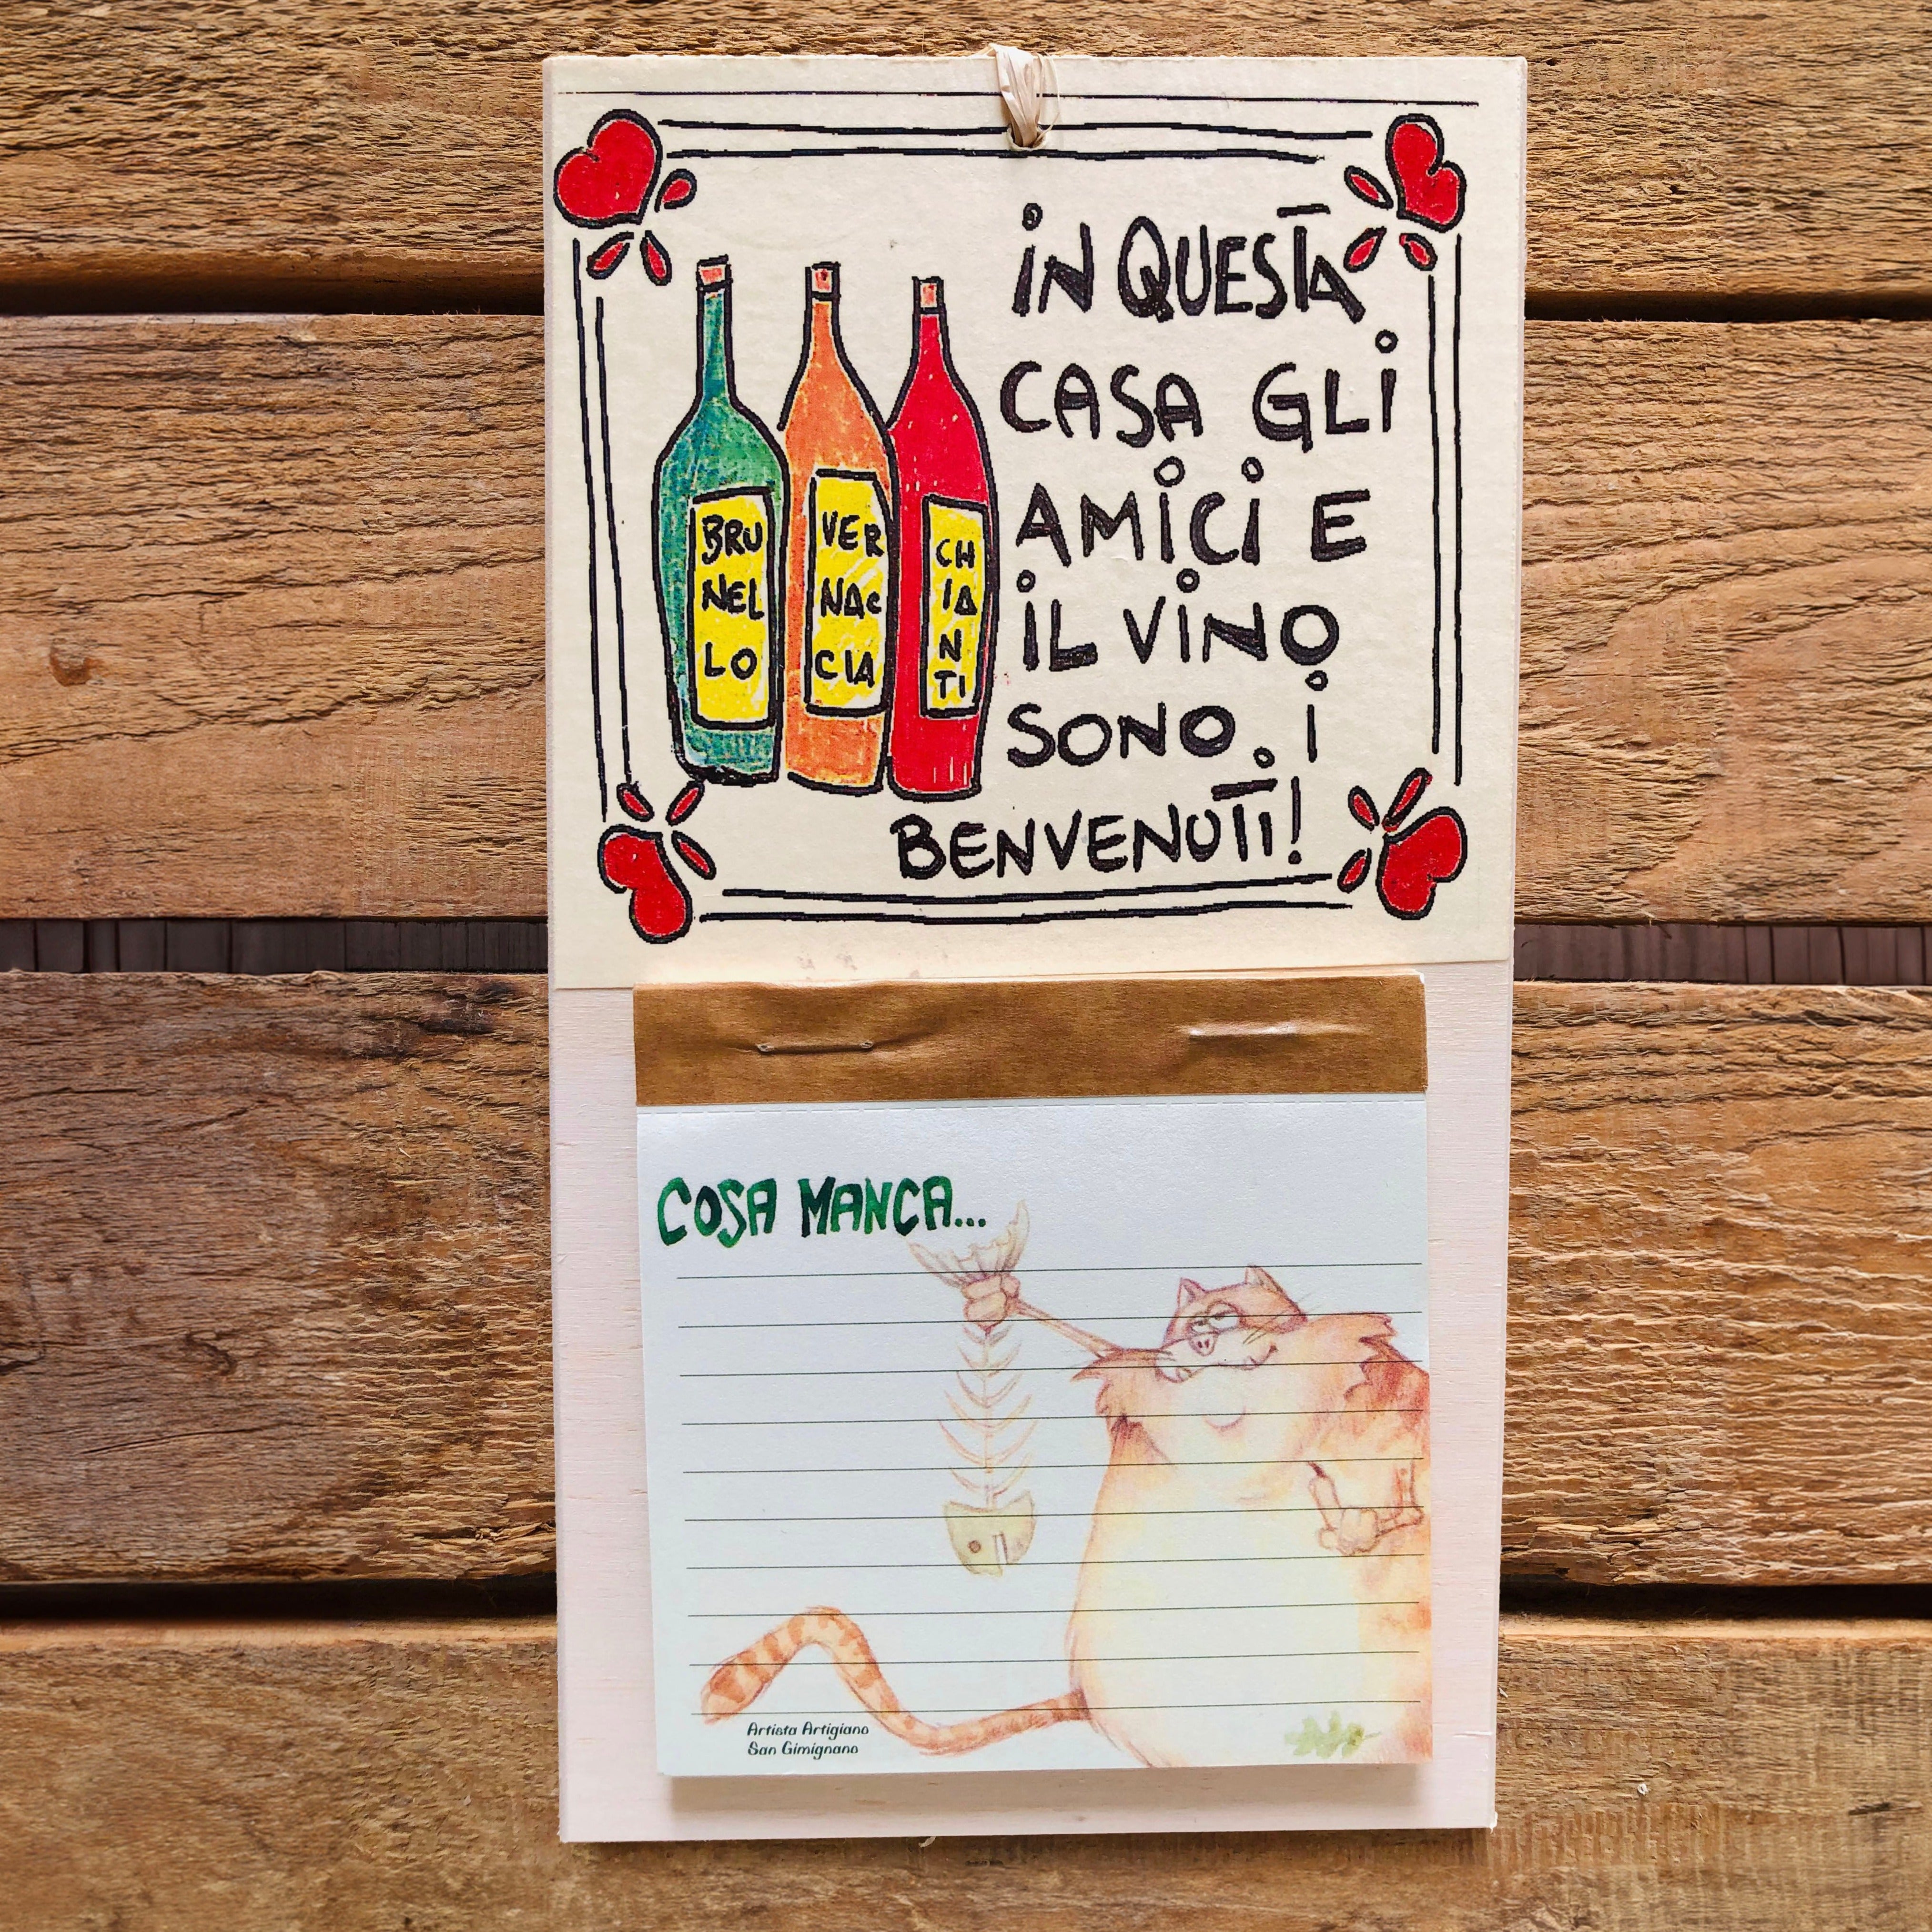 BRU
NEL
LO
VER
NAC
CIA
CH
IA
N
TI
iN QUESTA
CASA GLi
AMiCi E
iL ViNO
SONO i
BENVENUTi!
COSA MANCA...
Artista Artigiano
San Gimignano